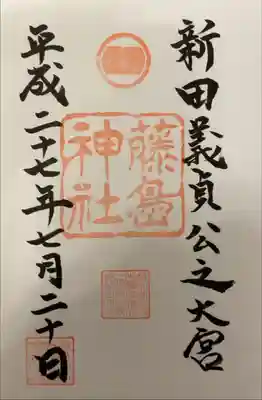 新田義貞公之大宮
藤島神社
平成二十七年七月二十日